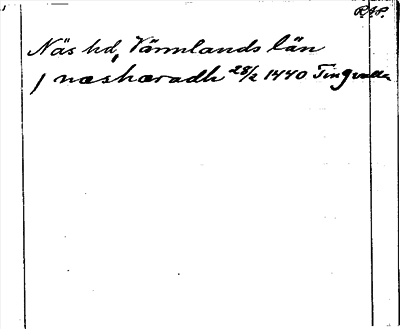 RAP.
Näs hd, Värmlands län
j næshæradh 28/2 1440 Tingvalla